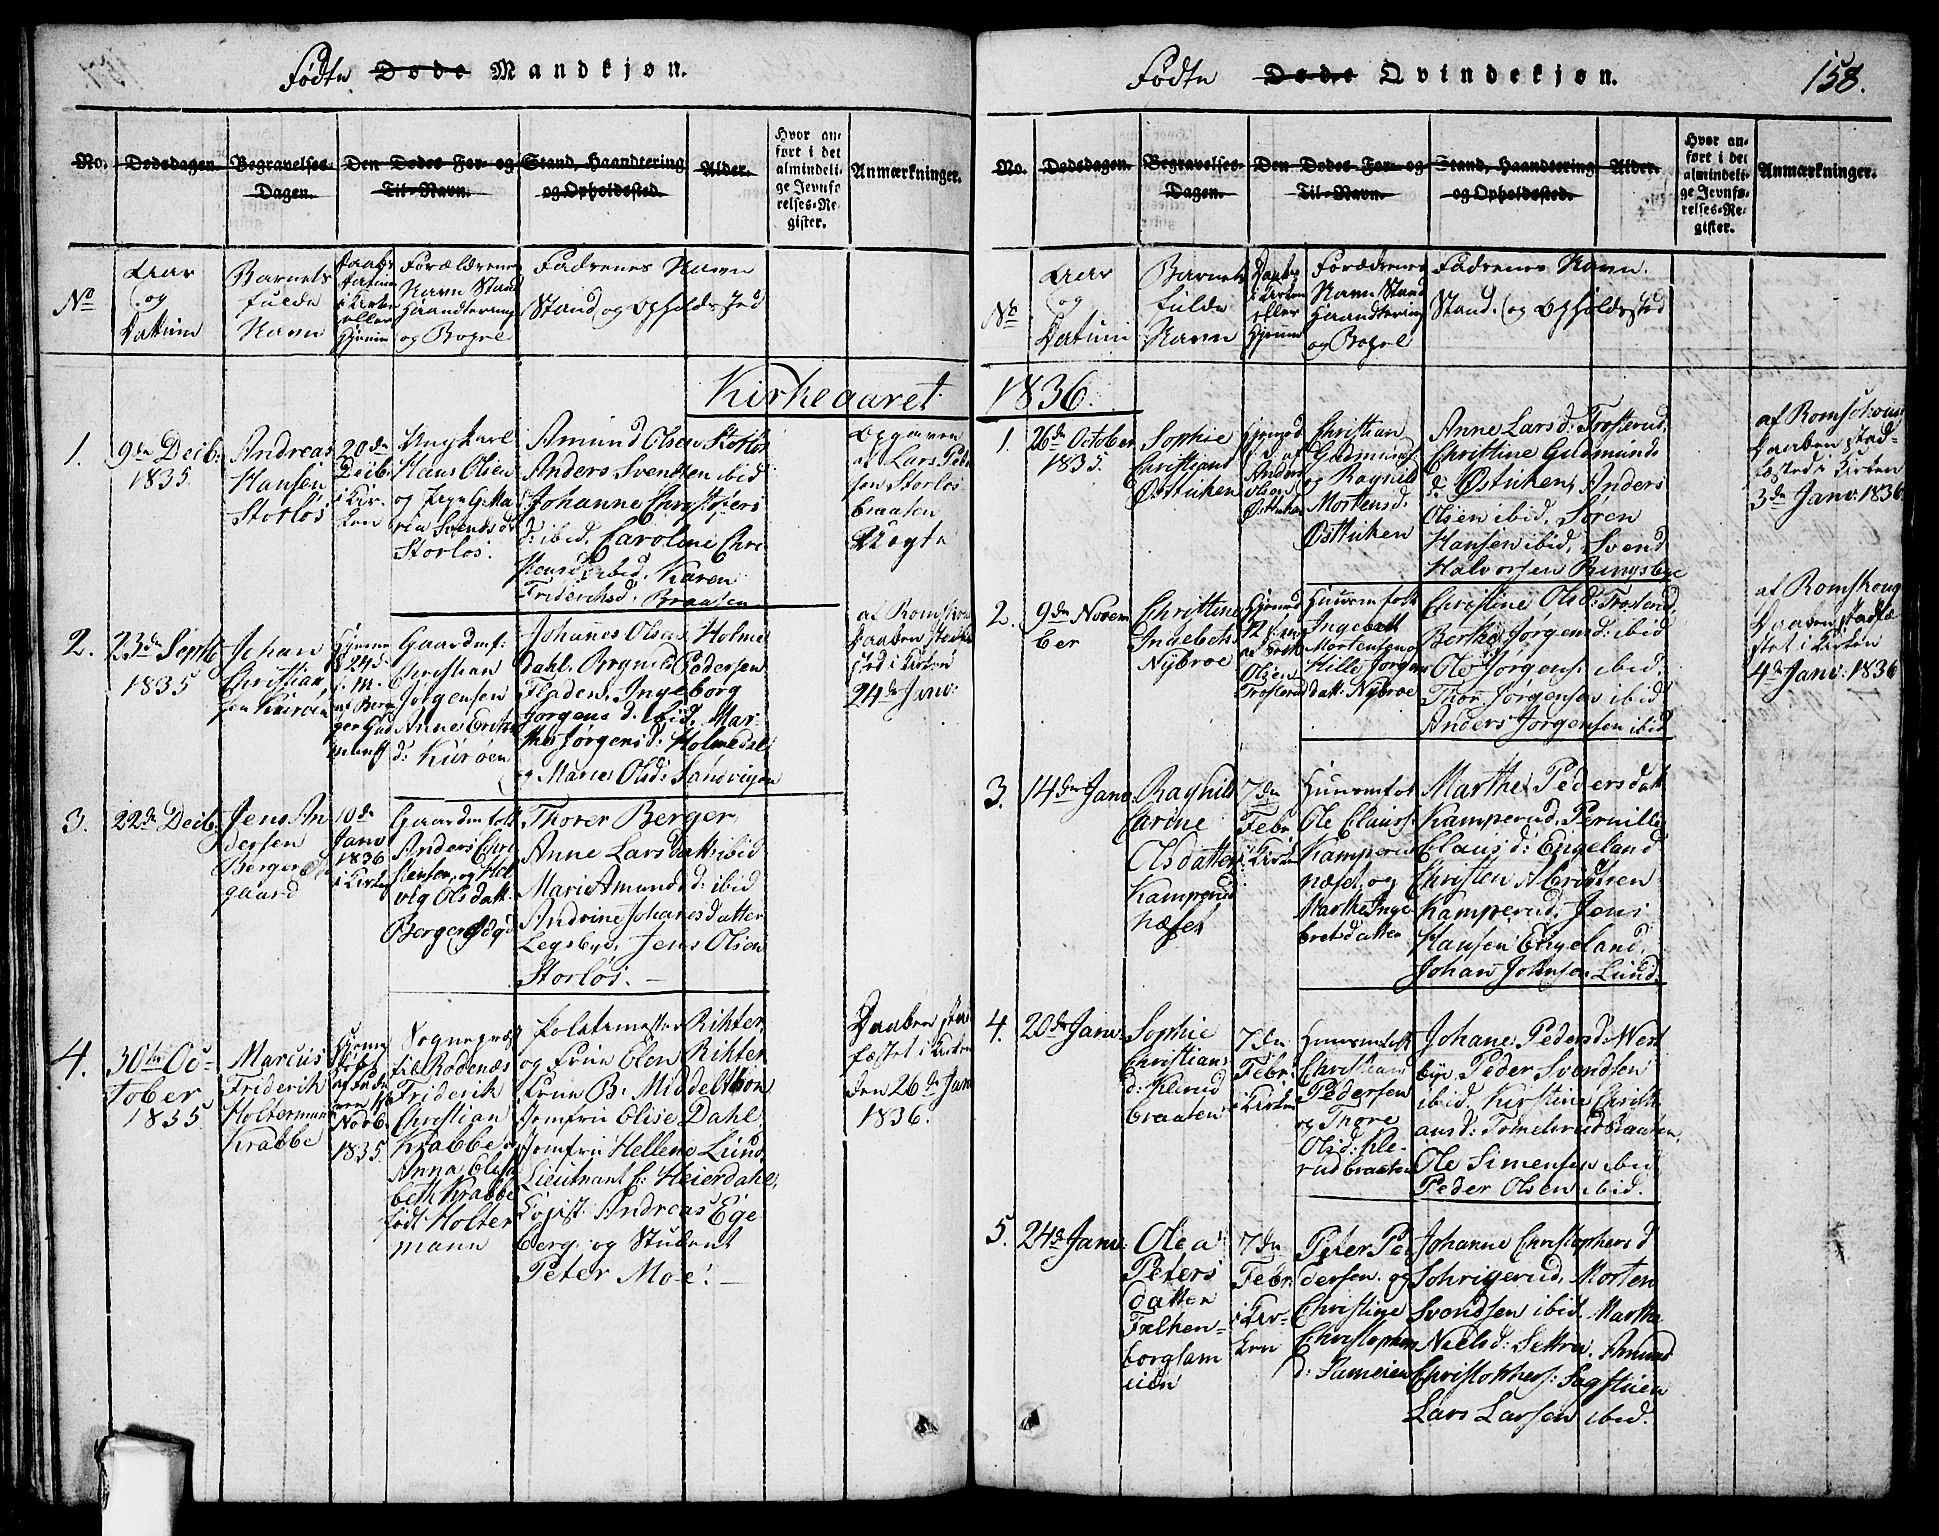 Fødte Døde Mandkjøn.
No.
Dødsdagen.
Begravelses-
Dagen.
Den Dødes For- og
Til-Navn.
Stand, Haandtering
og Opholdssted.
Alder.
Hvor an-
ført i det
almindeli-
ge Jevnfø-
relses-Re-
gister.
Anmærkninger.
No
Aar
og
Datum
Barnets
fulde
Navn
Daabs
Datum
i Kirken
eller
Hjemme
Forældrenes
Navn Stand
Haandtering
og Bopel
Fadrenes Navn
Stand og Opholdssted
Kirkeaaret
1.
9de Decb:
1835
Andreas
Hansen
Storløs
20de
Decb
i Kir-
ken
Ungkarl
Hans Olsen
og Pige G. Ma
ria Svendsd:
Storløs.
Amund Olsen Storløs
Anders Svendsen ibid
Johanne Christophers
d: ibid, Caroline Chri-
ibid. Karen
Friderichsd. Braaten
Opgiven
at Lars Pede
sen Storløs
braaten
2.
23de Septb
1835
Johan
Christian
sen Kurøen
Gaardmf:
Christian
Jørgensen
Anne Ericks
d: Kurøen
Johannes Olsen Holme
dahl. Brynild Pedersen
Fladen, Ingeborg
Jørgens d. ibid, Mar-
the Jørgensd: Holmedal
og Maria Olsd: Sandvigen
af Romskou
Daaben stadfæ
sted i Kirken
24de Janv:
3.
22de Decb.
Jens An
dersen
Berger
gaard
10de
Janv
1836
i Kirken
Gaardmfolk
Anders Chri
stensen og Hel
vig Olsdatt.
Berger
Thorer Berger,
Anne Larsdatt: ibid
Marie Amunds d: ibid
Andrine Johanesdatter
Legsbye, Jens Olsen
Storløs.
4.
30te Oc-
tober
1835
Marcus
Friderik
Holtermann
Krabbe
Hjemme
døbt
Novb.
1835
Sognepræst
til Rødenæs
Friderik
Christian
Krabbe og
Anna Elisa
beth Krabbe
født Holter
mann
Politimester Rikter,
og Frue Elen Rikter
Frue B: Middelthon
Jomfru Elise Dahl
Jomfru Hellene Lund
Lieutnant C: Heierdahl,
Copist Andreas Ege
berg og Student
Peter Moe.
Daaben stad
fæstet i Kirken
den 26de Janv
1836.
Fødte Døde Qvindekjøn.
158.
No.
Dødsdagen.
Begravelses-
Dagen.
Den Dødes For- og
Til-Navn.
Stand, Haandtering
og Opholdssted.
Alder.
Hvor an-
ført i det
almindeli-
ge Jevnfø-
relses-Re-
gister.
Anmærkninger.
No
Aar
og
Datum
Barnets
fulde
Navn
Daabs
i Kirken
eller
Hjemme
Forældrenes
Navn Stand
Haandtering
og Bopel
Fadrenes Navn.
Stand. og Opholdssted
1836.
1.
26de October
1835.
Sophie
Christians
Østuken
Hjemed
af
Anders
Olsen
Østuken
Christian
Gudmunds
og Ragnild
Mortensd.
Østuken
Anne Larsd: Trosterud,
Christine Gudmunds
d. Østuken, Anders
Olsen ibid, Søren
Hansen ibid, Svend
Halvorsen Bingsbye
af Romskoug
Daaben stad-
fæsted i Kirken
3de Janv: 1836
2.
9de Novem
ber
Christine
Ingebrets
Nybroe
Olsen
Trosterud
Huusmfolk
Ingebrett
Mortensen og
Hille Jørgens
datt: Nybroe
Christine Olsd: Trosterud,
Berthe Jørgensd: ibid
Ole Jørgens: ibid.
Thor Jørgensen ibid
Anders Jørgensen ibid
af Romskoug
Daaben stadfæ
stet i Kirken
4de Janv: 1836
3.
14de Janv.
Raghild
Carine
Olsdatter
Kamperud
næset
7de
Febr.
i Kirken
Huusmfolk
Ole Clauss:
Kamperud
næset og
Marthe Inge
bretsdatter
Marthe Pedersdatt
Kamperud, Pernille
Claus d: Engeland
Christen Albridtsen
Kamperud, Jens
Hansen Engeland,
Johan Johnsen Lund.
4.
20de Janv.
Sophie
Christians
d:
braaten
7de
Febr:
i Kirken
Huusmfolk
Christian
Pedersen
og Thore
Olsd:
rudbraaten
Johane Pedersd West
bye, Peder Svendsen
ibid. Kirstine Christi
ansd: Tomelerudbraaten,
Ole Simensen ibid
Peder Olsen ibid.
5.
24de Janv:
Olea
Peters
datter
Falken-
borglam
eien
7de
Febr.
i Kir-
ken
Peter Pe
dersen og
Christine
Christophers
d:
Johanne Christophersd
Sohrigerud, Morten
Svendsen ibid. Marthe
Nielsd: Settra. Amund
Christophers: Sagstuen
Lars Larsen ibid.